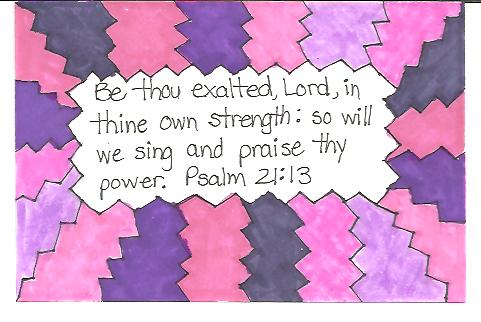 Be thou exalted, Lord, in
thine own strength: so will
we sing and praise thy
power. Psalm 21:13